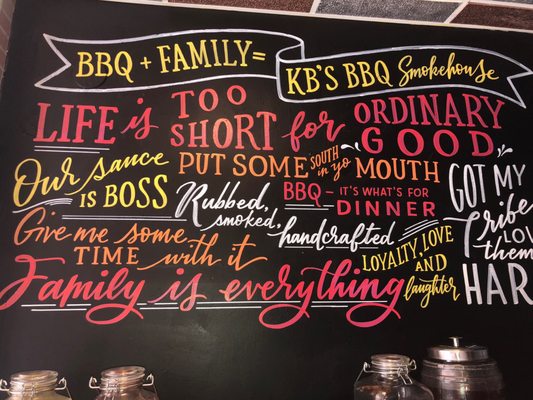 BBQ + FAMILY =
KB'S BBQ Smokehouse
LIFE is TOO SHORT for ORDINARY GOOD
Our sauce IS BOSS
PUT SOME SOUTH in yo MOUTH
Rubbed, smoked, handcrafted
BBQ - IT'S WHAT'S FOR DINNER
GOT MY
Tribe
LOVE
them
HAR
Give me some TIME with it
LOYALTY, LOVE AND laughter
Family is everything